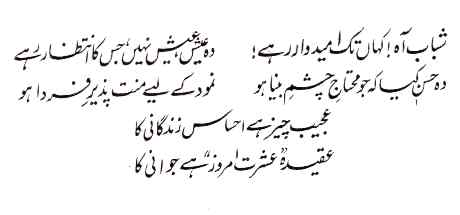 شباب آہ! کہاں تک امیدوار رہے! وہ عیش، عیش نہیں، جس کا انتظار رہے
وہ حسن کیا کہ جو محتاجِ چشمِ بینا ہو نمود کے لیے منت پذیرِ فردا ہو
عجیب چیز ہے احساس زندگانی کا
عقیدہ عشرتِ امروز ہے جوانی کا